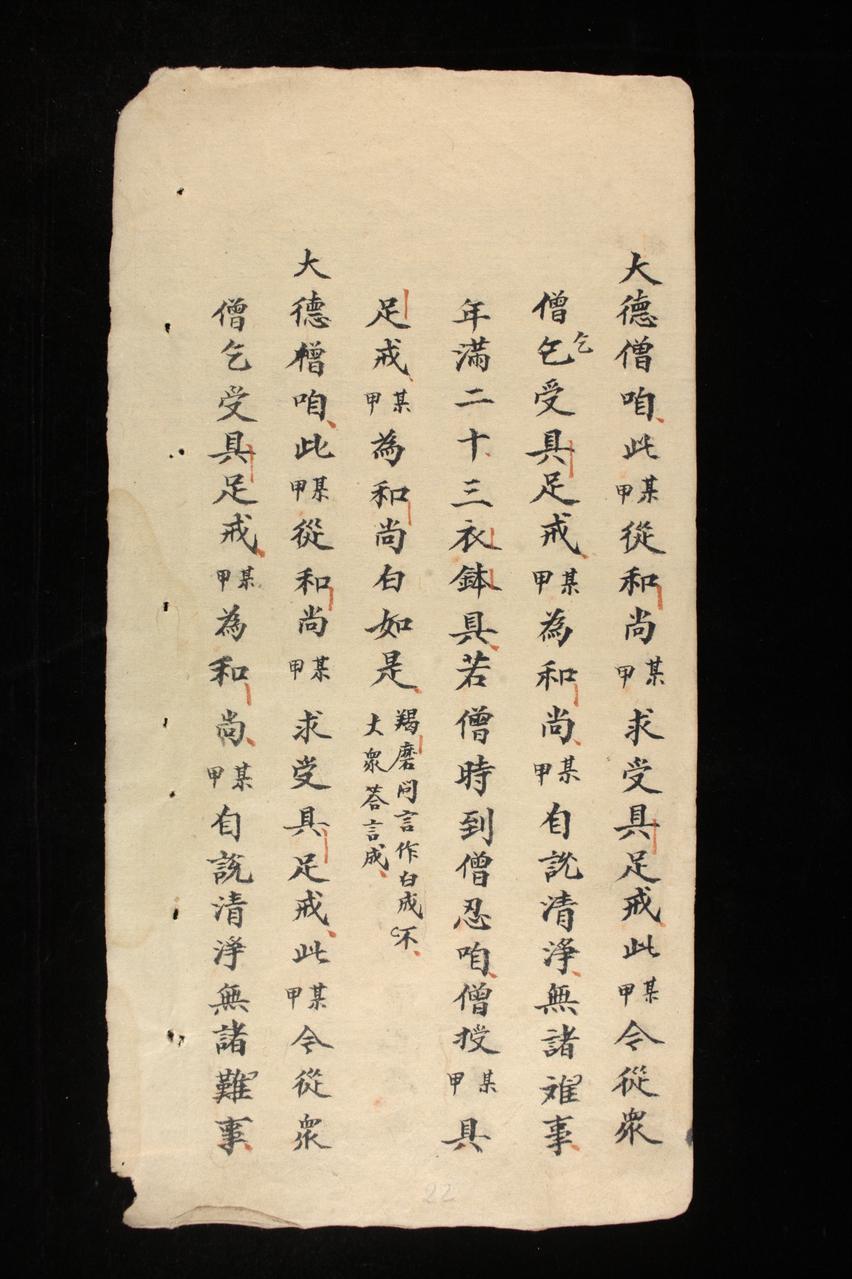 大德僧咱此某甲從和尚某甲求受具足戒此某甲令從衆
僧乞乞受具足戒某甲為和尚某甲自說清淨無諸難事
年滿二十三衣鉢具若僧時到僧忍咱僧授某甲具
足戒某甲為和尚白如是羯磨问言作白成不
大衆荅言成
大德僧咱此某甲從和尚某甲求受具足戒此某甲令從衆
僧乞受具足戒某甲為和尚某甲自說清淨無諸難事
22